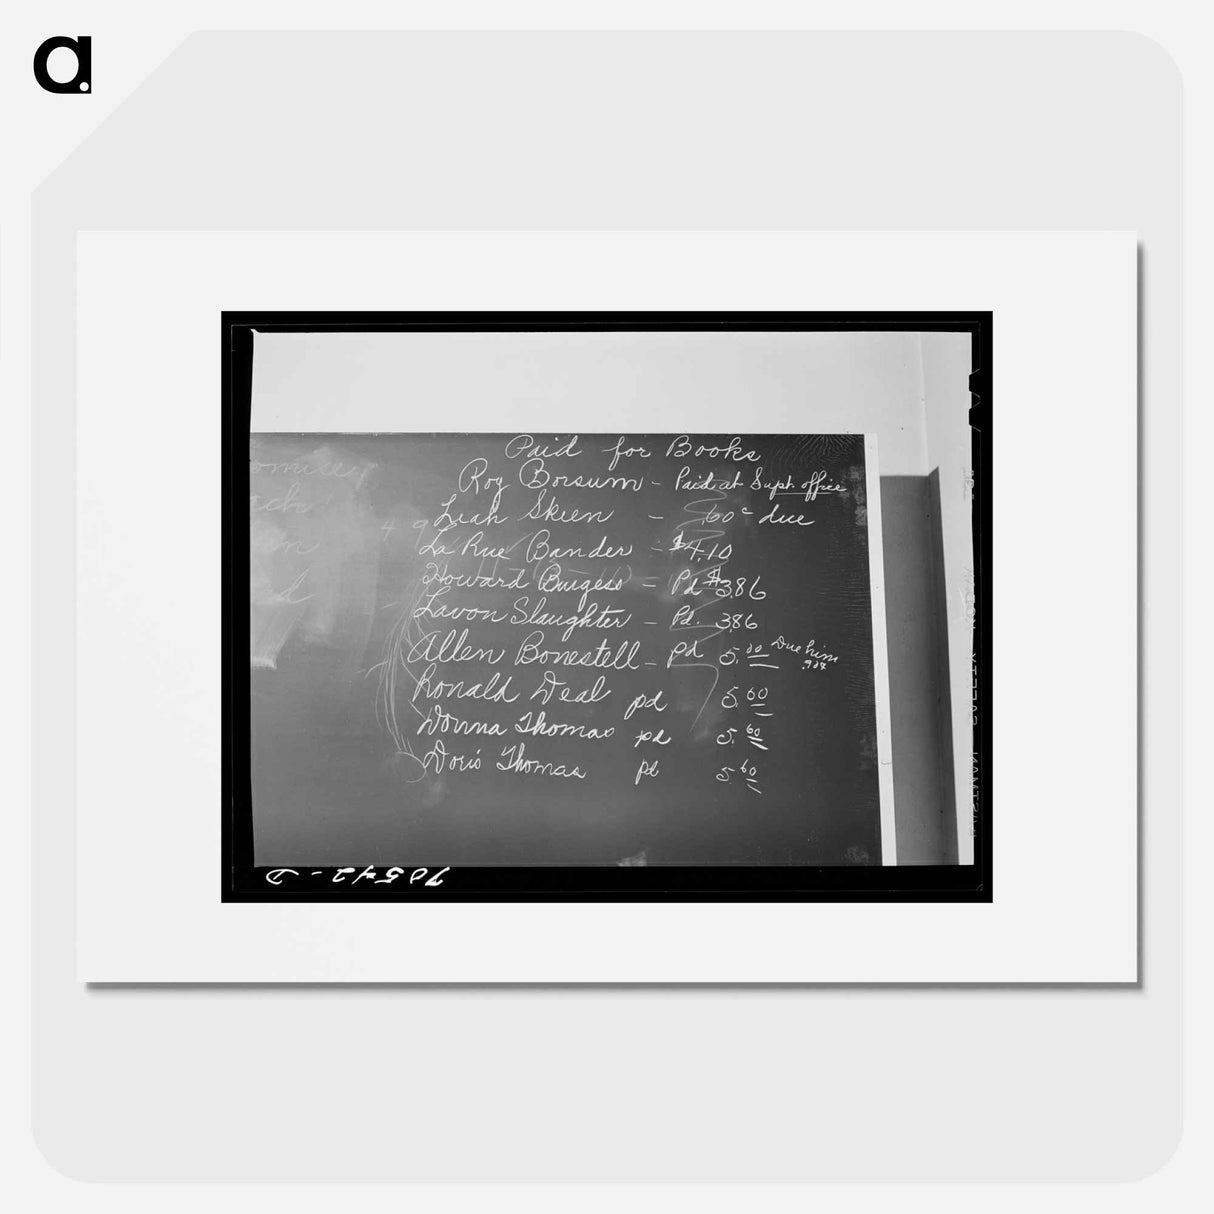 a.
Paid for Books
Roy Borsum - Paid at Supt. office
Leah Skeen - .60c due
La Rue Bander - $4.10
Howard Burgess - Pd $3.86
Lavon Slaughter - Pd. 3.86
Allen Bonestell - pd 5.00 Due him
Ronald Deal pd 5.60
Donna Thomas pd 5.60
Doris Thomas pd 5.60
70542-D